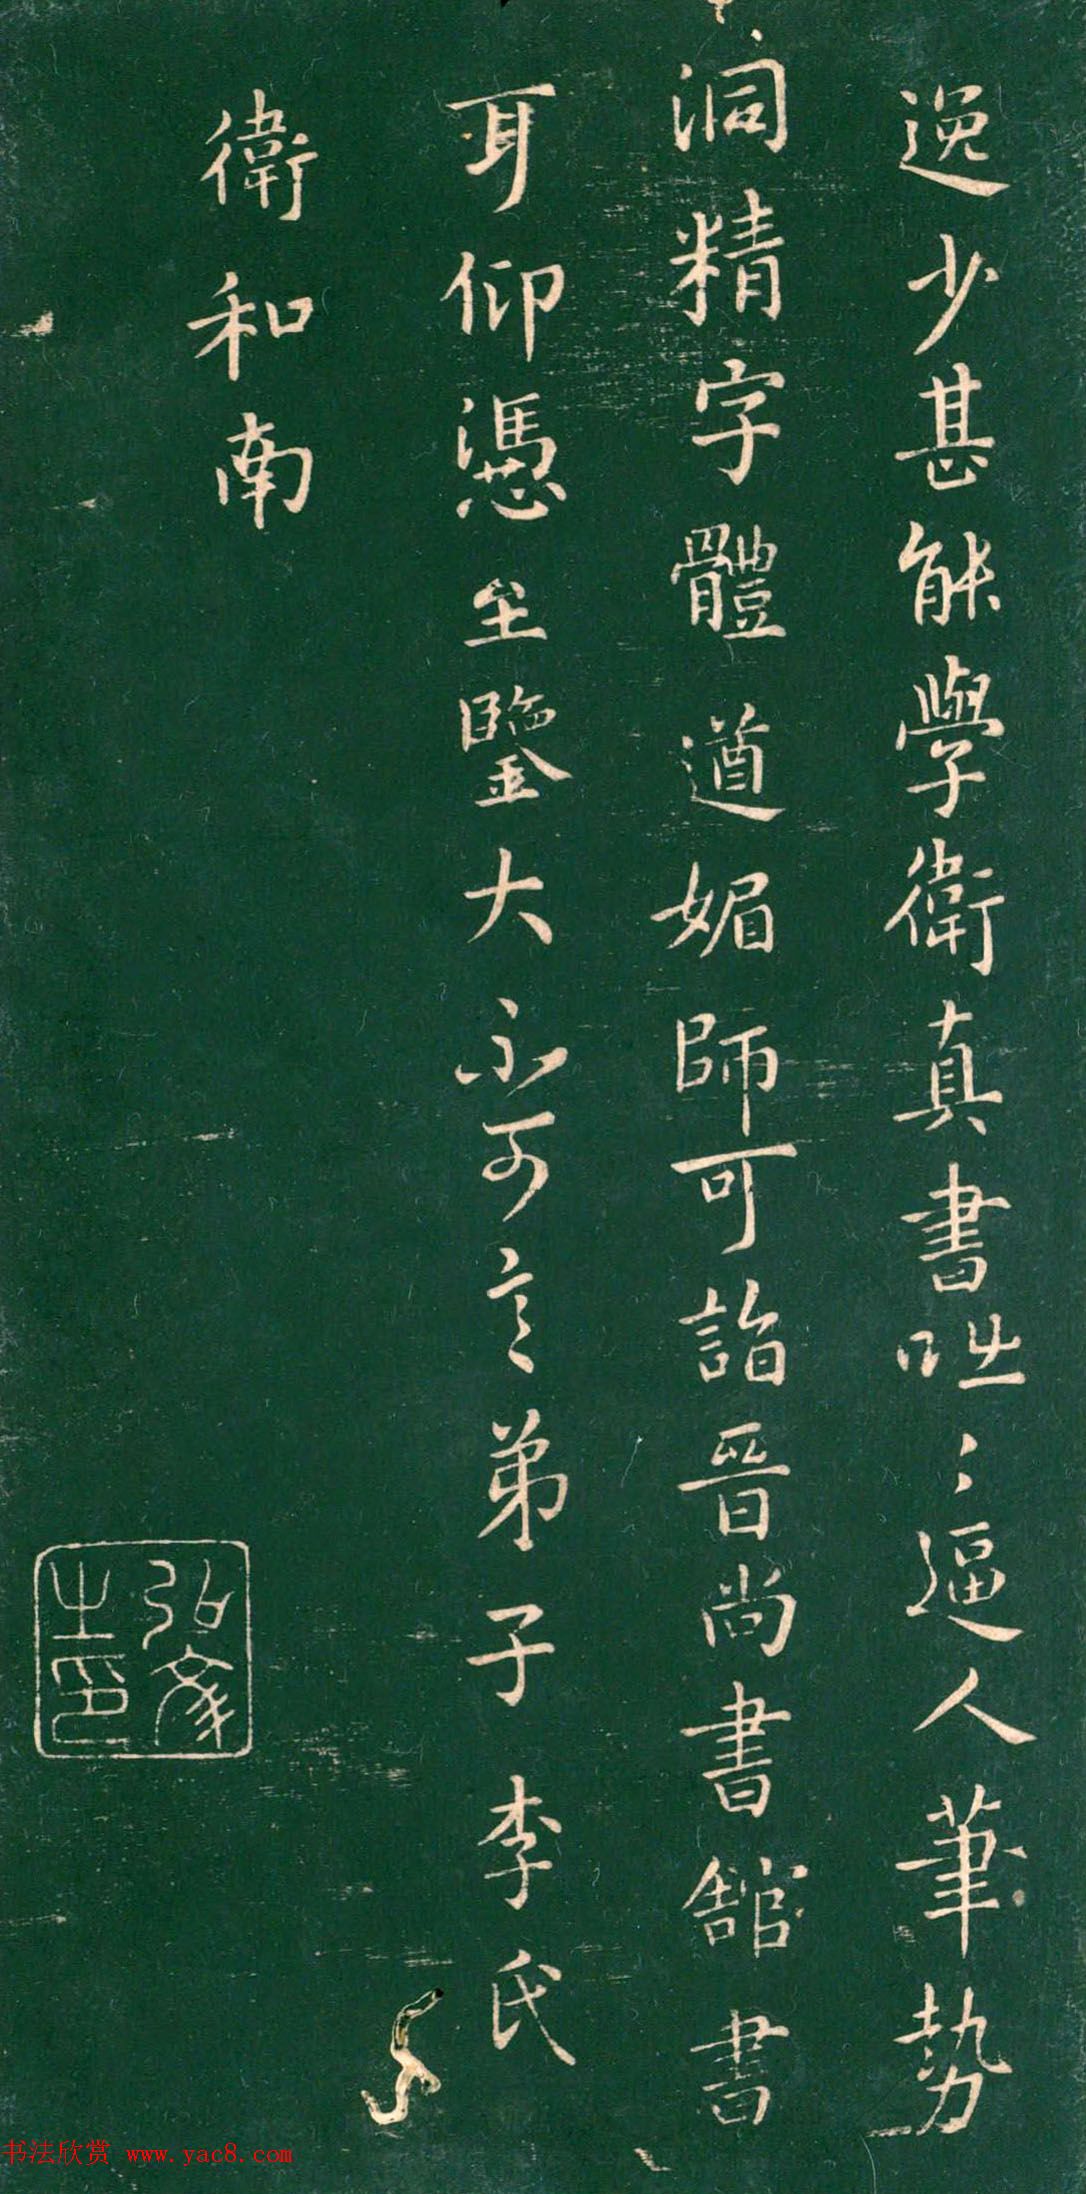 逸少甚能學衛真書咄〻逼人筆勢
洞精字體遒媚師可詣晉尚書館書
耳仰憑至鑒大不可言弟子李氏
衛和南
书法欣赏 www.yac8.com